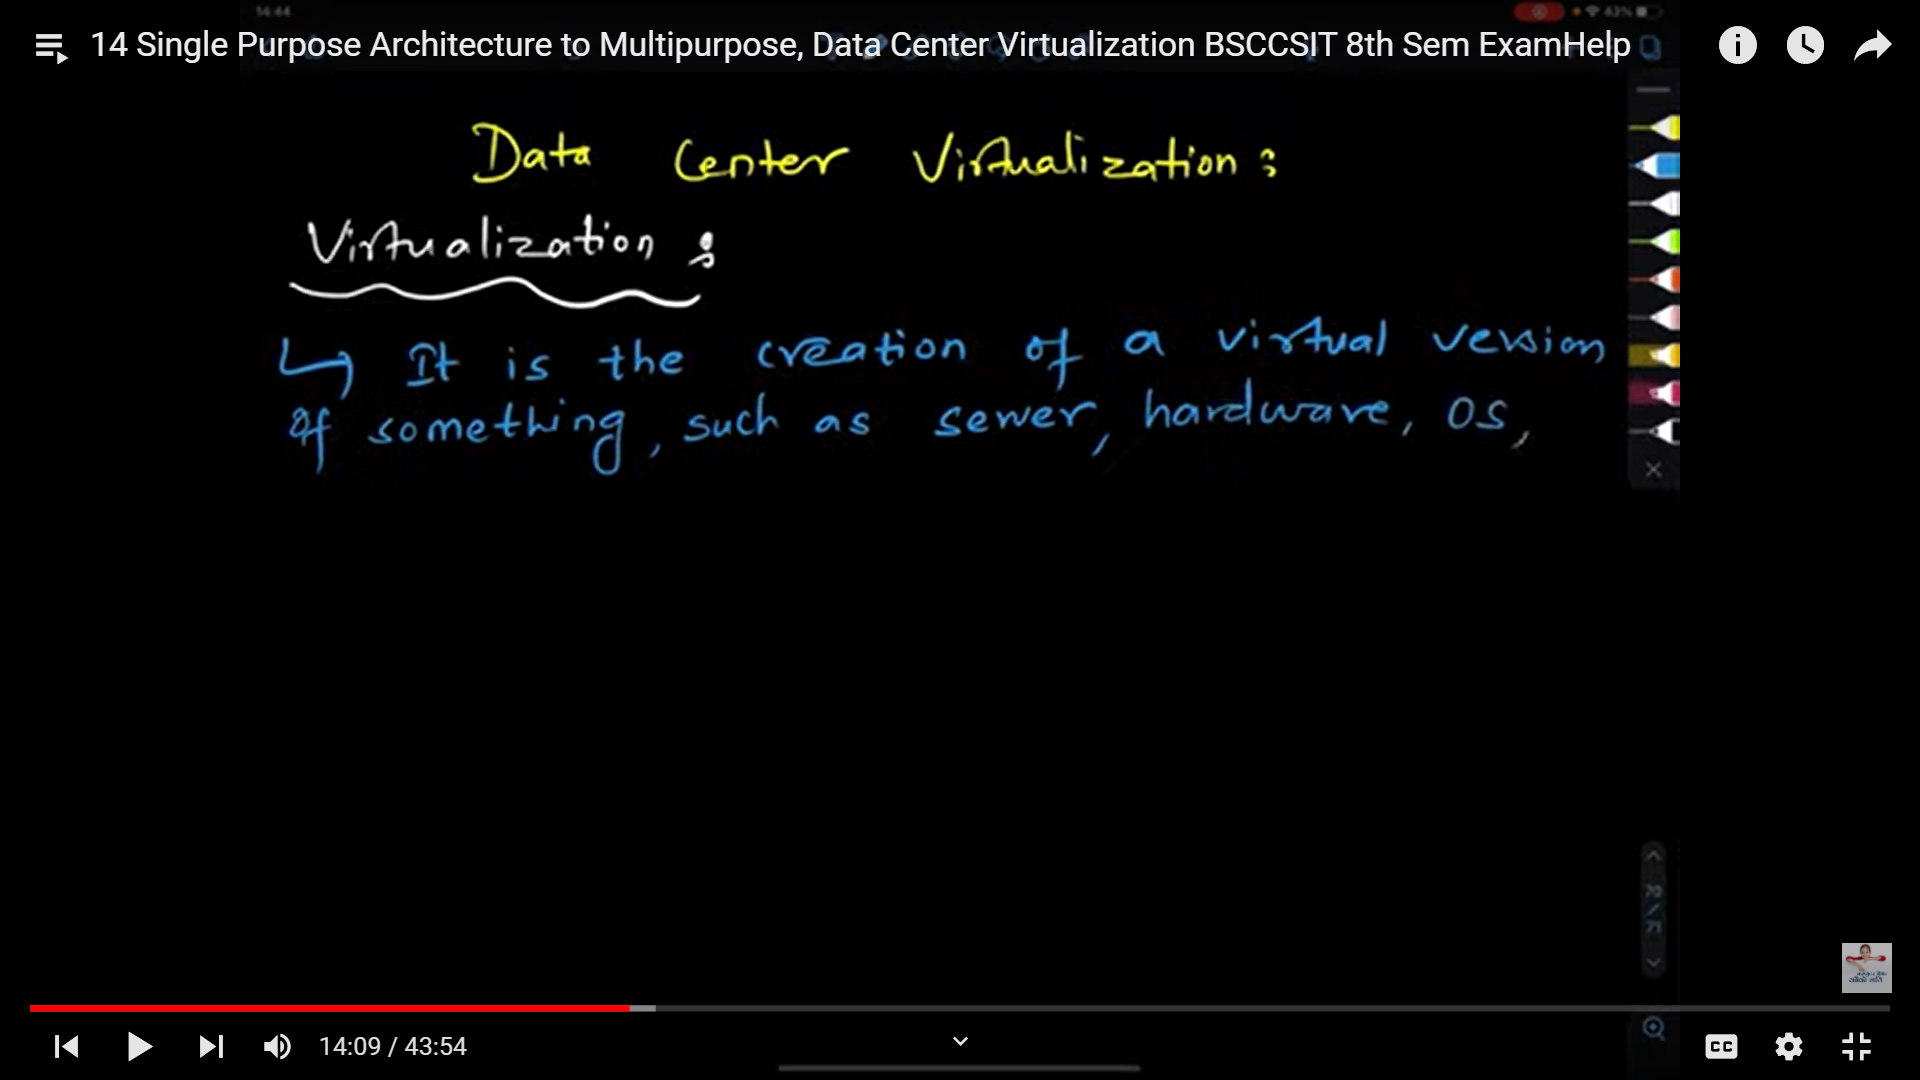 14:44 43%
14 Single Purpose Architecture to Multipurpose, Data Center Virtualization BSCCSIT 8th Sem ExamHelp
Data Center Virtualization :
Virtualization :
It is the creation of a virtual version
of something, such as server, hardware, OS,
14:09 / 43:54
CC